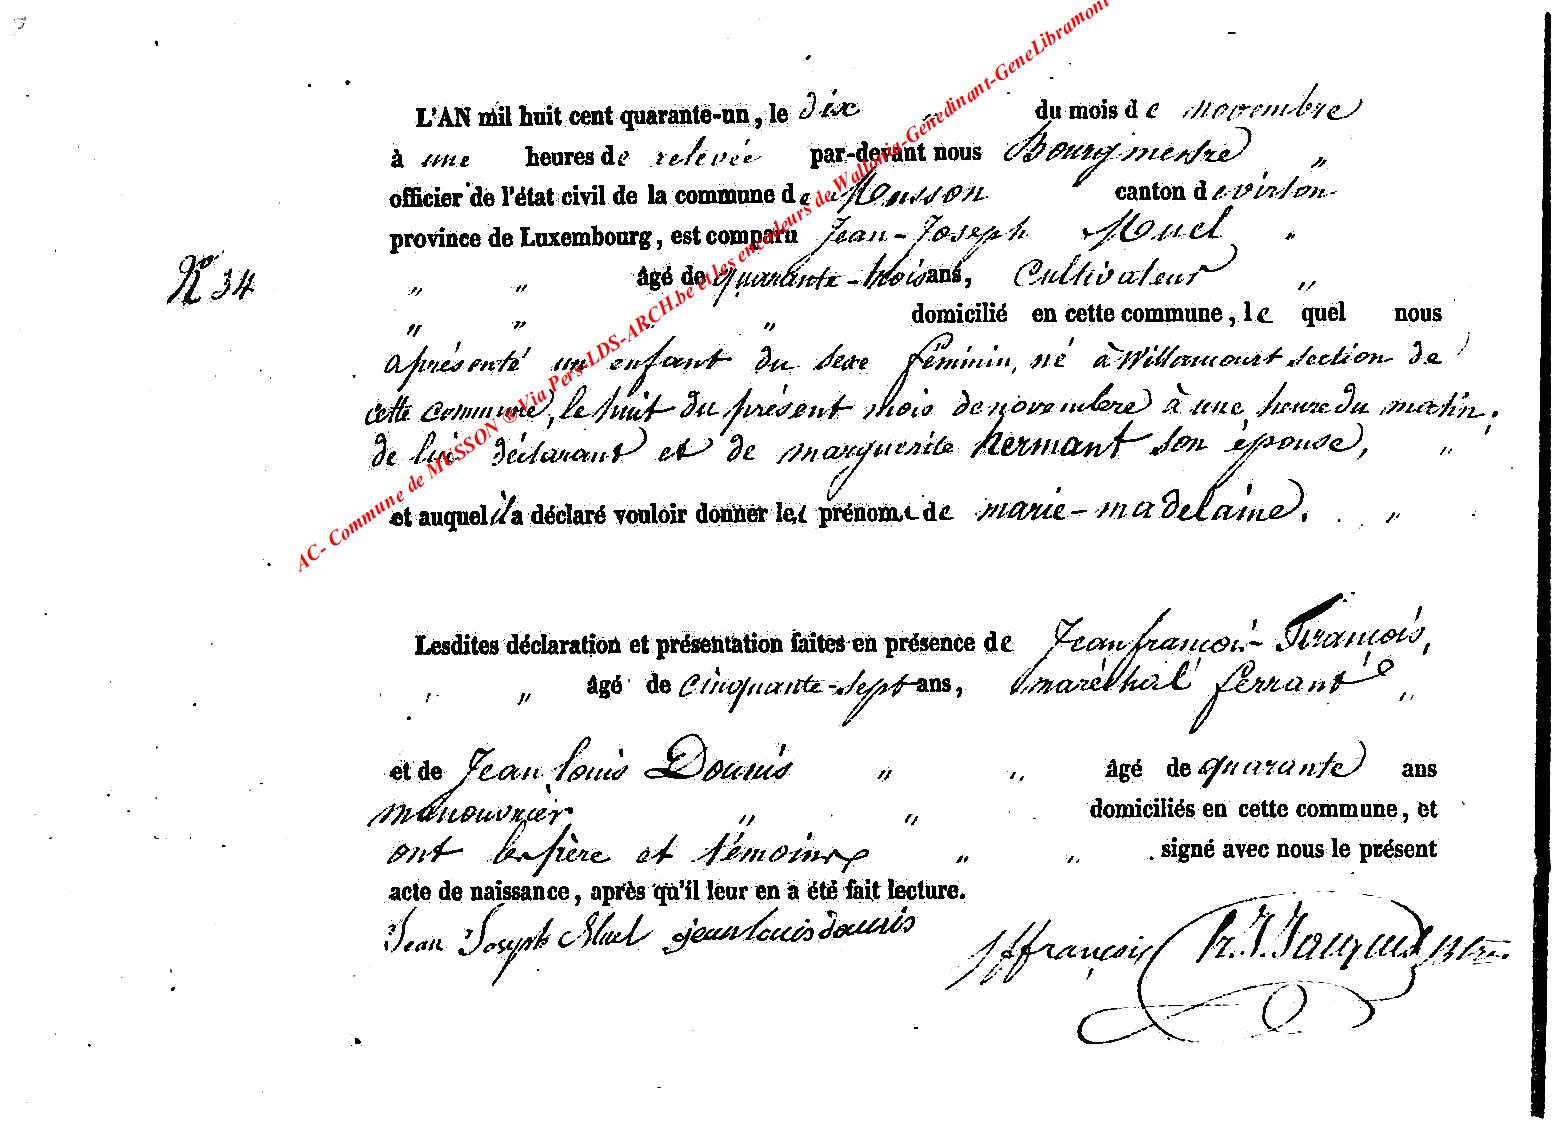 L'AN mil huit cent quarante-un, le dix „ du mois de novembre
à une heures de relevée par-devant nous Bourgmestre „
officier de l'état civil de la commune de Musson canton de virton
province de Luxembourg, est comparu Jean-Joseph Muel „
N° 34
„ „ âgé de quarante-trois ans, Cultivateur „
„ „ „ domicilié en cette commune, le quel nous
a présenté un enfant du sexe féminin, né à Willancourt section de
cette commune, le huit du présent mois de novembre à une heure du matin,
de lui déclarant et de marguerite hermant son épouse, „
et auquel il a déclaré vouloir donner les prénoms de marie-madelaine. „
Lesdites déclaration et présentation faites en présence de Jean françois- François,
„ „ âgé de cinquante-sept ans, maréchal ferrant „
et de Jean louis Dounis „ „ âgé de quarante ans
manouvrier „ „ domiciliés en cette commune, et
ont les père et témoins „ „ signé avec nous le présent
acte de naissance, après qu'il leur en a été fait lecture.
Jean Joseph Muel jean louis dounis
jffrançois
AC- Commune de MUSSON ® Via Pers-LDS-ARCH.be et les encodeurs de Wallonia-Genedinant-GeneLibramont